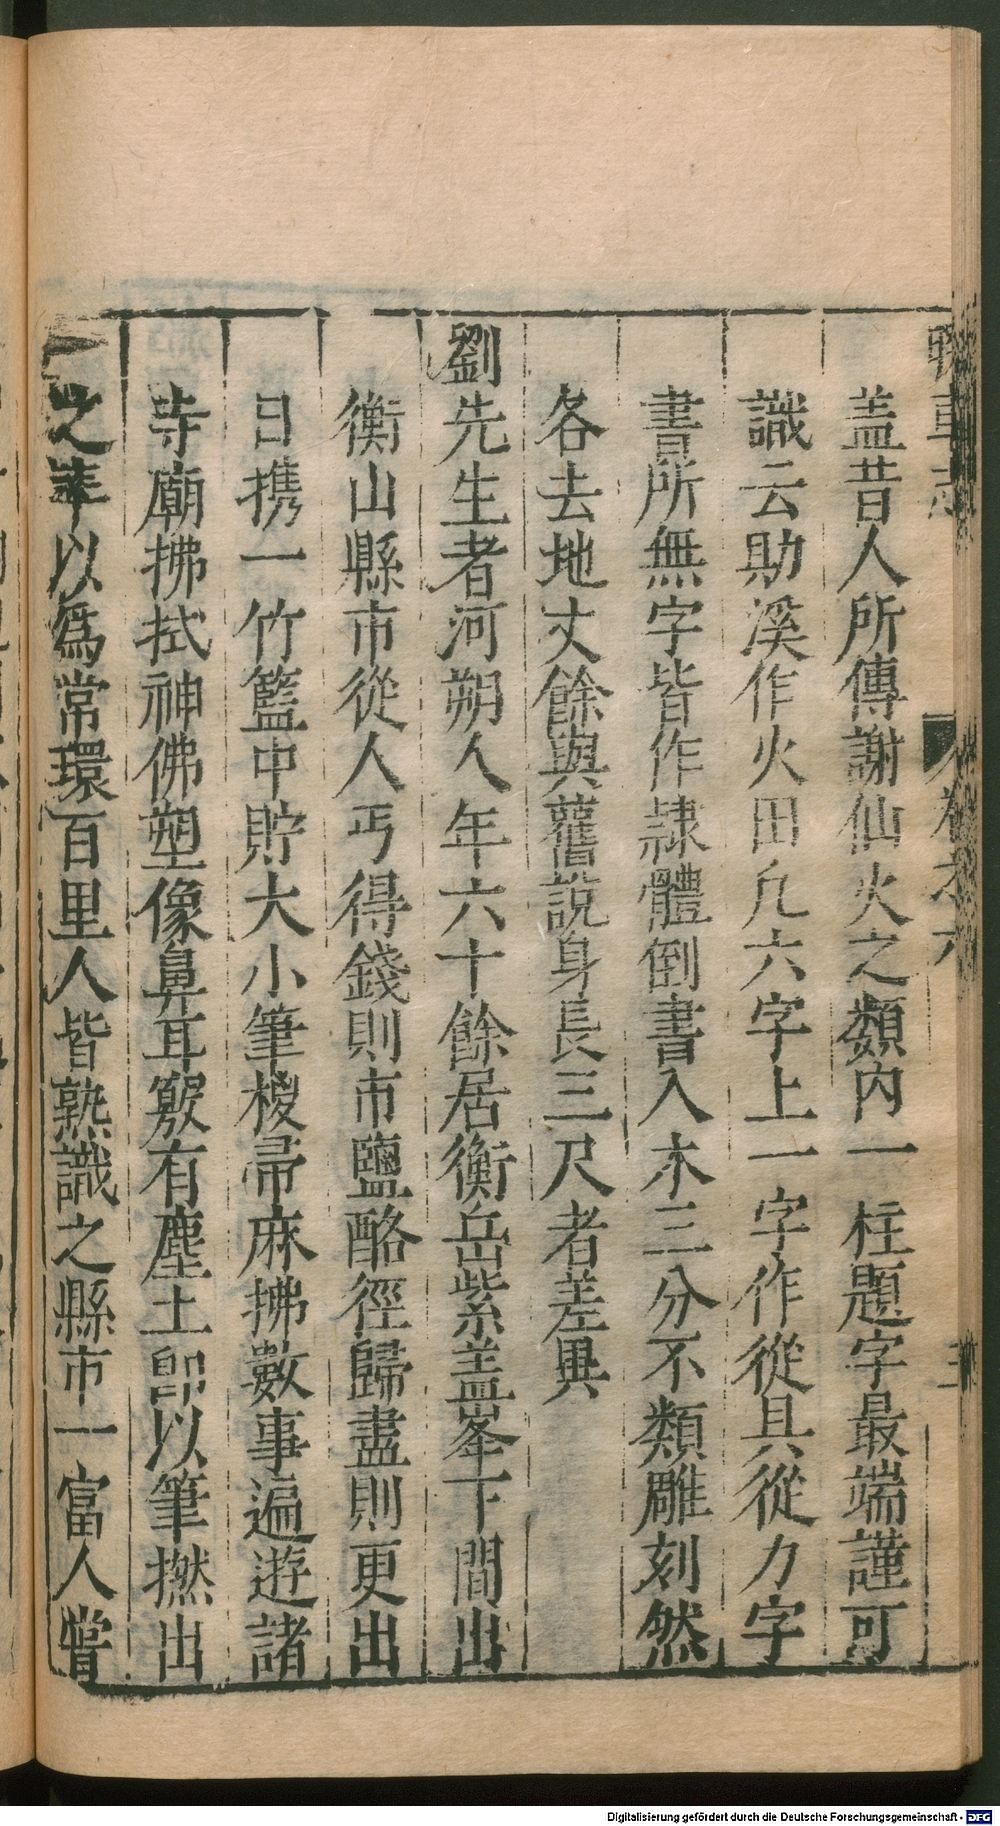 盖昔人所傳謝仙火之類内一柱題字最端謹可
識云助溪作火田凡六字上一字作從具從力字
書所無字皆作隷體倒書入木三分不類雕刻然
各去地丈餘與舊說身長三尺者差異
劉先生者河朔人年六十餘居衡岳紫盖峯下間出
衡山縣市從人丐得錢則市鹽酪徑歸盡則更出
日携一竹籃中貯大小筆椶帚麻拂數事遍遊諸
寺廟拂拭神佛塑像鼻耳竅有塵土即以筆撚出
之率以爲常環百里人皆熟識之縣市一富人嘗
車志
卷之六
三
Digitalisierung gefördert durch die Deutsche Forschungsgemeinschaft - DFG